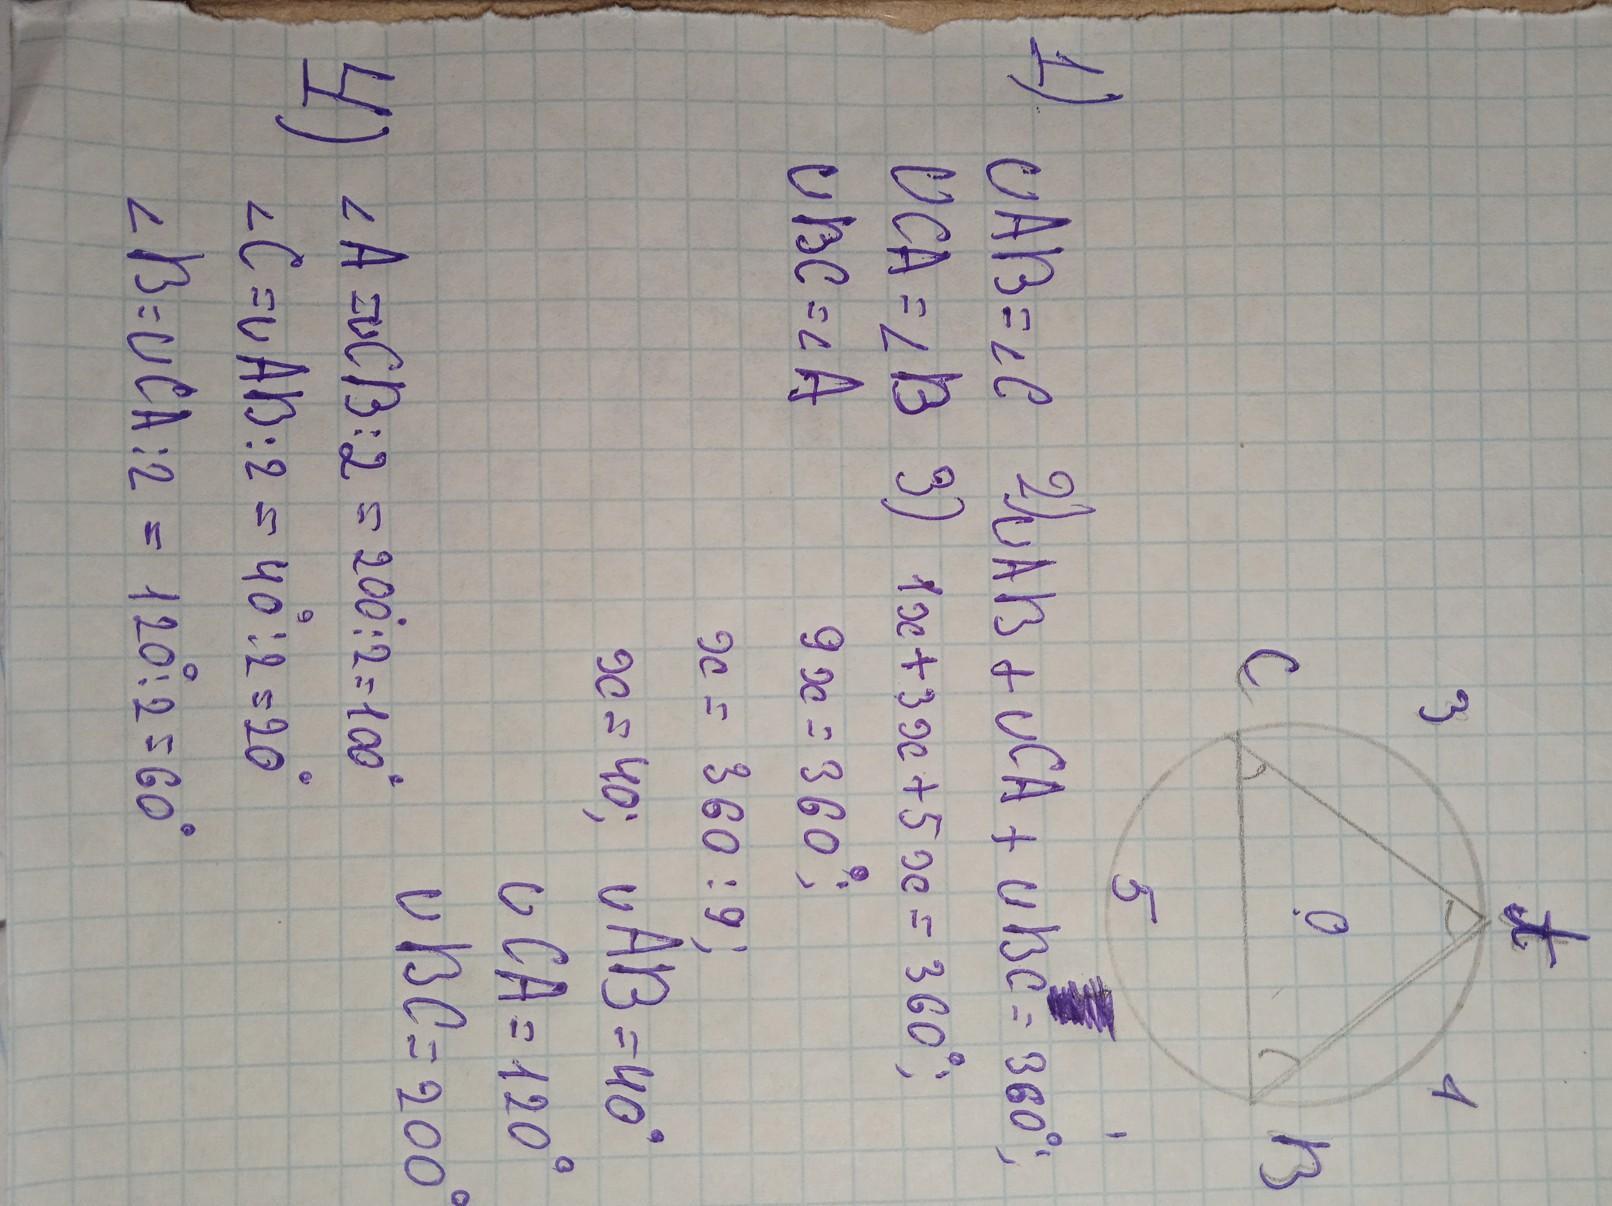 A
3
1
O
C
B
5
1) ∪AB=∠C 2) ∪AB+∪CA+∪BC=360°;
∪CA=∠B 3) 1x+3x+5x=360°;
∪BC=∠A 9x=360°;
x=360:9;
x=40; ∪AB=40°
∪CA=120°
∪BC=200°
4) ∠A=∪CB:2=200°:2=100°
∠C=∪AB:2=40°:2=20°
∠B=∪CA:2=120°:2=60°